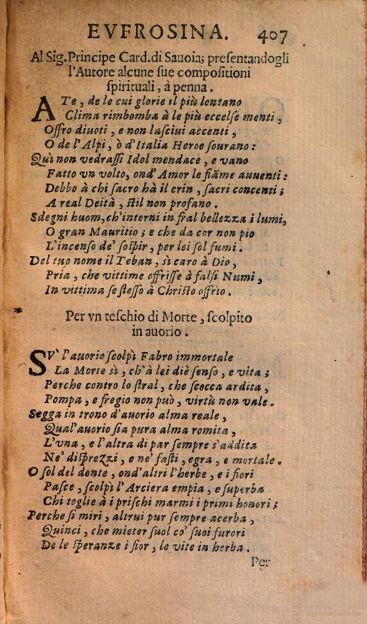 EVFROSINA. 407
Al Sig. Principe Card. di Sauoia; presentandogli
l'Autore alcune sue compositioni
spirituali, à penna.
A Te, de lo cui glorie il più lontano
Clima rimbomba à le più eccelse menti,
Offro diuoti, e non lasciui accenti,
O de l'Alpi, ò d'Italia Heroe sourano:
Quì non vedrassi Idol mendace, e vano
Fatto vn volto, ond'Amor le fiãme auuenti:
Debbo à chi sacro hà il crin, sacri concenti;
A real Deità, stil non profano.
Sdegni huom, ch'interni in fral bellezza i lumi,
O gran Mauritio; e che da cor non pio
L'incenso de' sospir, per lei sol fumi.
Del tuo nome il Teban, sì caro à Dio,
Pria, che vittime offrisse à falsi Numi,
In vittima se stesso à Christo offrio.
Per vn teschio di Morte, scolpito
in auorio.
SV' l'auorio scolpì Fabro immortale
La Morte sì, ch'à lei diè senso, e vita;
Perche contro lo stral, che scocca ardita,
Pompa, e fregio non può, virtù non vale.
Segga in trono d'auorio alma reale,
Qual'auorio sia pura alma romita,
L'vna, e l'altra di par sempre s'addita
Ne' disprezzi, e ne' fasti, egra, e mortale.
O sol del dente, ond'altri l'herbe, e i fiori
Pasce, scolpì l'Arciera empia, e superba
Chi toglie à i prischi marmi i primi honori;
Perche si miri, altrui pur sempre acerba,
Quinci, che mieter suol co' suoi furori
De le speranze i fior, le vite in herba.
Per